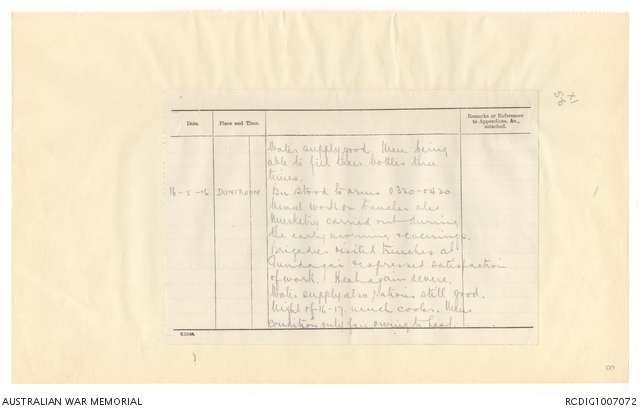 Date.
Place and Time.
Remarks or References
to Appendices, &c.,
attached.
Water supply good. Men being
able to fill their bottles three
times.
16-5-16 DUNTROON. Bn stood to arms 0330-0430
Usual work on trenches also
Musketry carried out during
the early morning & evenings.
Brigadier visited trenches at
Gundagai expressed satisfaction
of work. Heat again severe.
Water supply also rations still good.
Night of 16-17 much cooler. Mens
condition only fair owing to heat.
AUSTRALIAN WAR MEMORIAL
RCDIG1007072